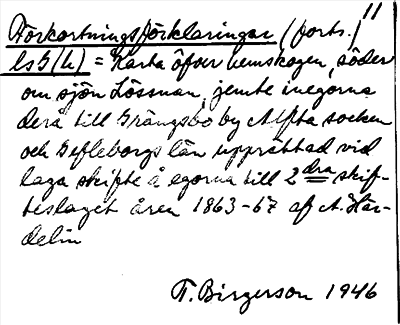 11
Förkortningsförklaringar (forts.)
ls5(h) = Karta öfver hemskogen, söder
om sjön Lössnan, jemte inegorna
derå till Grängsbo by Alfta socken
och Gefleborgs län upprättad vid
laga skifte å egorna till 2dra skif-
teslaget åren 1863-67 af A. Här-
delin
T. Birgerson 1946